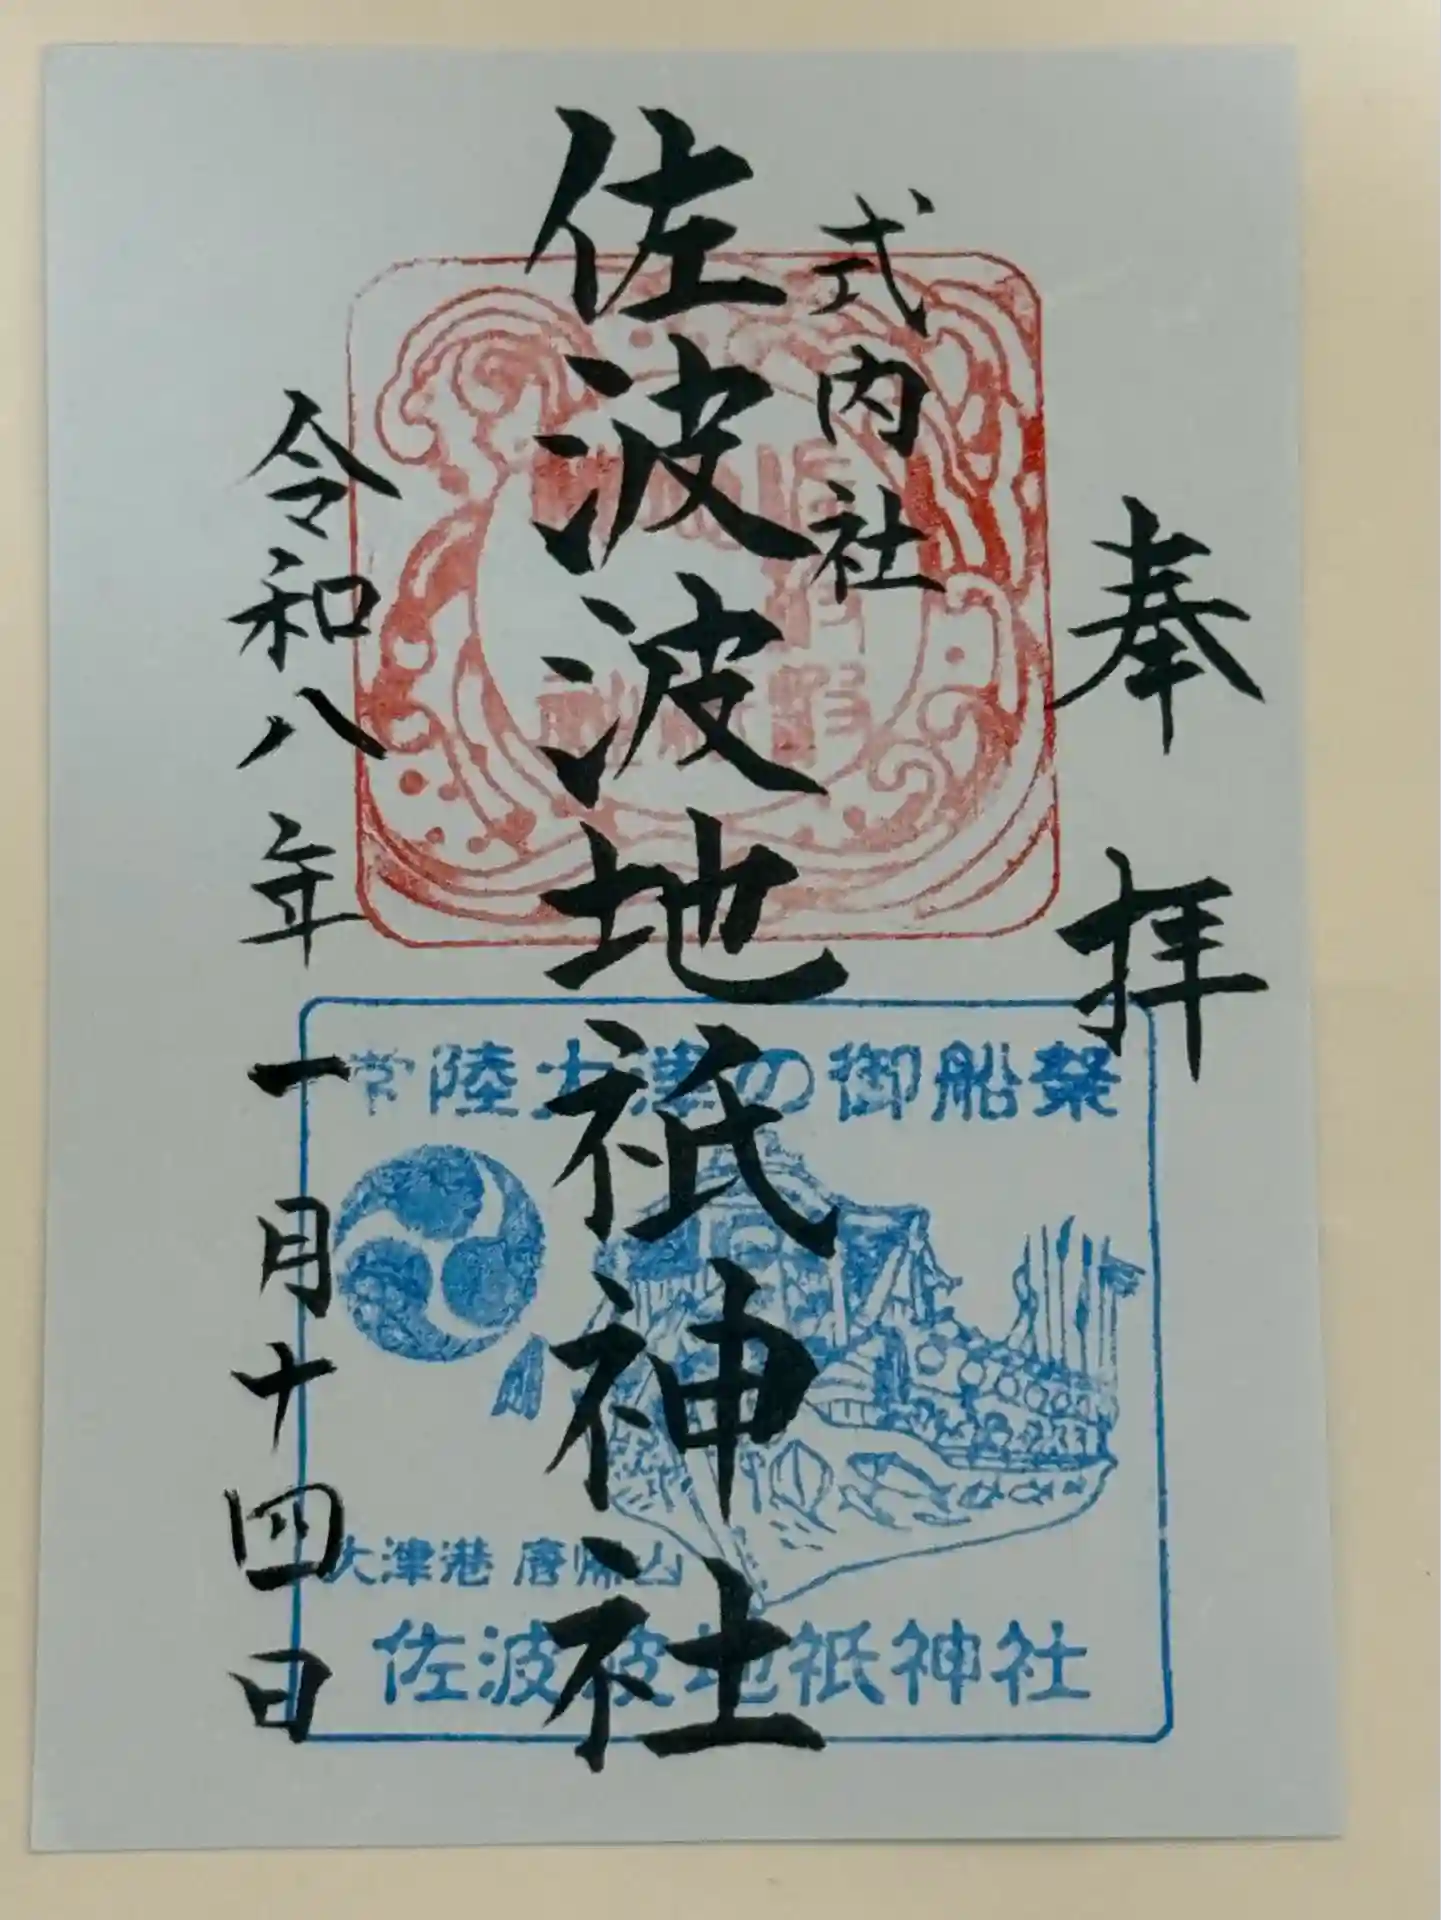 奉拝
式内社
佐波波地祇神社
令和八年一月十四日
常陸大津の御船祭
大津港 唐帰山
佐波波地祇神社